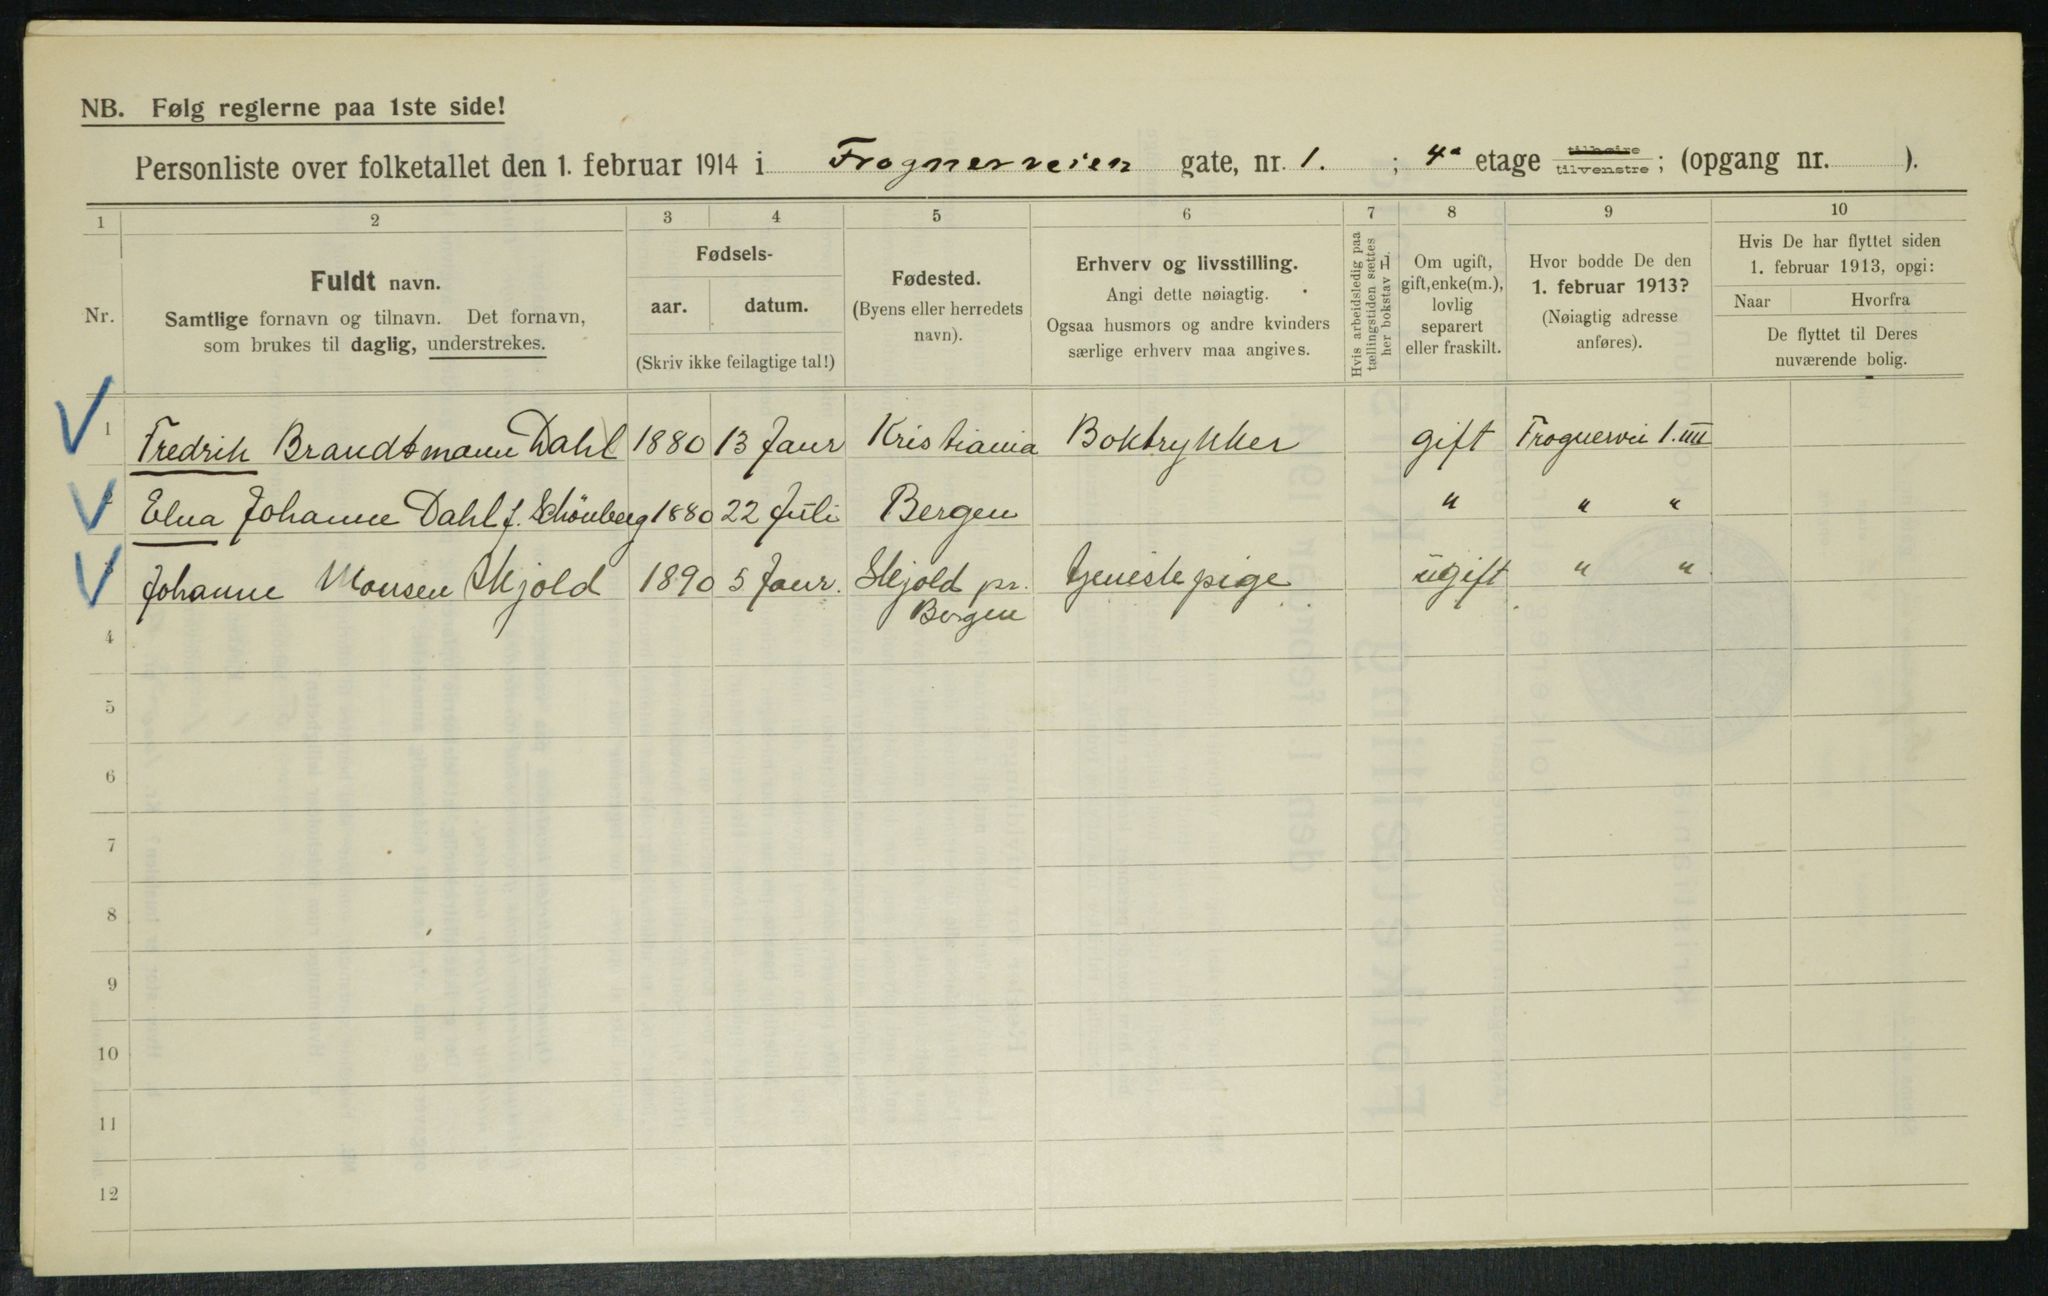 NB. Følg reglerne paa 1ste side!
Personliste over folketallet den 1. februar 1914 i Frognerveien gate, nr. 1. ; 4de etage tilhøire tilvenstre ; (opgang nr. ).
1 2 3 4 5 6 7 8 9 10
Nr.
Fuldt navn.
Samtlige fornavn og tilnavn. Det fornavn,
som brukes til daglig, understrekes.
Fødsels-
aar. datum.
(Skriv ikke feilagtige tal!)
Fødested.
(Byens eller herredets
navn).
Erhverv og livsstilling.
Angi dette nøiagtig.
Ogsaa husmors og andre kvinders
særlige erhverv maa angives.
Hvis arbeidsledig paa
tællingstiden sættes
her bokstav L.
Om ugift,
gift, enke(m.),
lovlig
separert
eller fraskilt.
Hvor bodde De den
1. februar 1913?
(Nøiagtig adresse
anføres).
Hvis De har flyttet siden
1. februar 1913, opgi:
Naar Hvorfra
De flyttet til Deres
nuværende bolig.
1 Fredrik Brandtmann Dahl 1880 13 Janr Kristiania Boktrykker gift Frognervei 1. IIII
2 Elna Johanne Dahl f. Schönberg 1880 22 Juli Bergen " " "
3 Johanne Monsen Skjold 1890 5 Janr. Skjold pr. tjenestepige ugift " "
Bergen
4
5
6
7
8
9
10
11
12